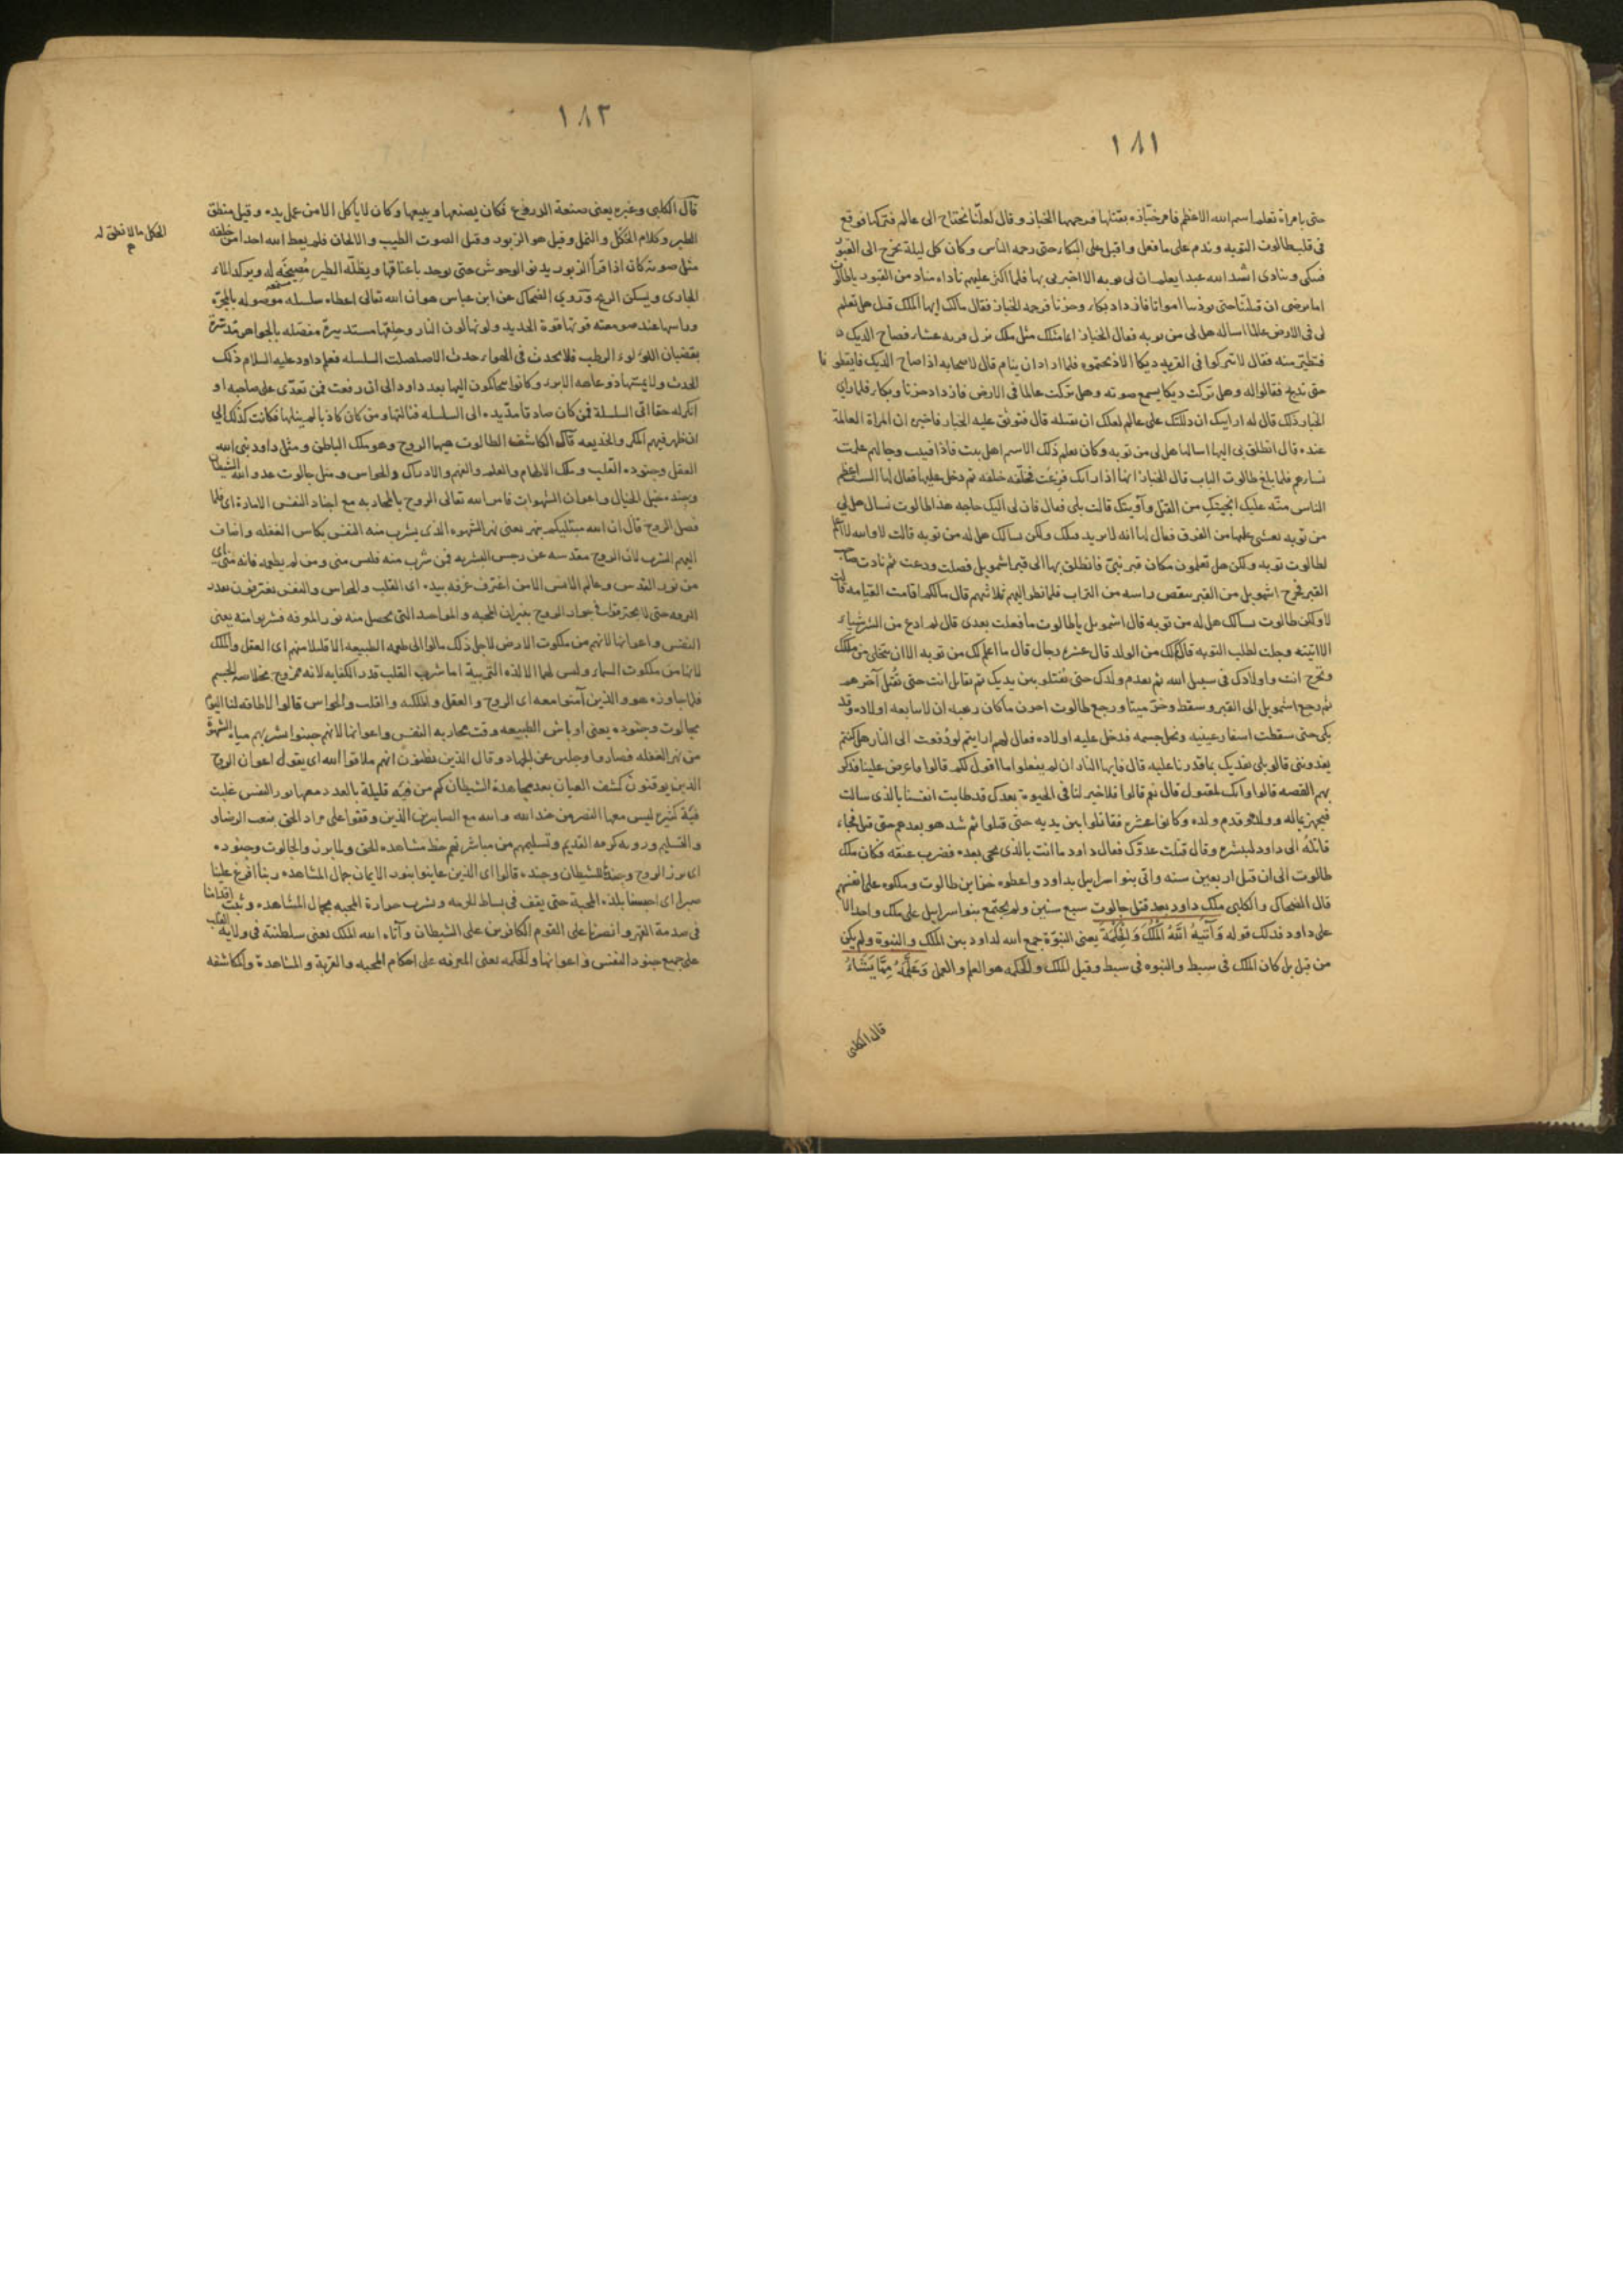 ١٨١
حتى بامراة تعلم اسم الله الاعظم فامر خبّازه بقتلها فرحمها الخباز و قال لعلّنا نحتاج الى عالم فتركها فوقع
فى قلب طالوت التوبه و ندم على ما فعل و اقبل على البكاء حتى رحمه الناس و كان كل ليلة يخرج الى القبور
فيبكى و ينادى انشد الله عبدا يعلم ان لى توبه الا اخبرنى بها فلما اكثر عليهم ناداه مناد من القبور يا طالوت
اما ترضى ان قتلتنا حتى توذينا امواتا فازداد بكاء و حزنا فرحمه الخباز فقال مالك ايها الملك قيل هل تعلم
لى فى الارض عالما اساله هل لى من توبه فقال الخباز انما مثلك مثل ملك نزل قريه عشاء فصاح الديك
فتطيّر منه فقال لا تتركوا فى القريه ديكا الا ذبحتموه فلما اراد ان ينام قال لاصحابه اذا صاح الديك فايقظونا
حتى ندلج فقالوا له و هل تركت ديكا يسمع صوته و هل تركت عالما فى الارض فازداد حزنا و بكاء فلما راى
الخباز ذلك قال له ارايتك ان دللتك على عالم لعلك ان تقتله قال فتوثق عليه الخباز فاخبره ان المراة العالمة
عنده قال انطلق بى اليها اسالها هل لى من توبه و كان يعلم ذلك الاسم اهل بيت فاذا فنيت رجالهم علمت
نساوهم فلما بلغ طالوت الباب قال الخباز انها اذا راتك فزعت فخلّفه خلفه ثم دخل عليها فقال لها الست اعظم
الناس منّه عليك انجيتك من القتل و آويتك قالت بلى فقال فان لى اليك حاجه هذا طالوت يسال هل لى
من توبه فغشى عليها من الفرق فقال لها انه لا يريد قتلك و لكن يسالك هل له من توبه قالت لا والله لا اعلم
لطالوت توبه و لكن هل تعلمون مكان قبر نبىّ فانطلق بها الى قبر اشمويل فصلت و دعت ثم نادت صاحب
القبر فخرج اشمويل من القبر ينفض راسه من التراب فلما نظر اليهم ثلاثتهم قال مالكم اقامت القيامه قالت
لا و لكن طالوت يسالك هل له من توبه قال اشمويل يا طالوت ما فعلت بعدى قال لم ادع من الشر شياء
الا اتيته و جئت لطلب التوبه قال كم لك من الولد قال عشره رجال قال ما اعلم لك من توبه الا ان تتخلى من ملكك
و تخرج انت و اولادك فى سبيل الله ثم تقدم ولدك حتى يقتلوا بين يديك ثم تقاتل انت حتى تقتل آخرهم
ثم رجع اشمويل الى القبر و سقط و خرّ ميتا و رجع طالوت احزن ما كان رهبه ان لا يتابعه اولاده و قد
بكى حتى سقطت اشفار عينيه و نحل جسمه فدخل عليه اولاده فقال لهم ارايتم لو دُفعت الى النار هل كنتم
تفدوننى قالو بلى نفديك بما قدرنا عليه قال فانها النار ان لم تفعلوا ما اقول لكم قالوا فاعرض علينا فذكر
بهم القصه قالوا و انك لمقتول قال نعم قالوا فلا خير لنا فى الحيوة بعدك قد طابت انفسنا بالذى سالت
فتجهز بماله و ولده و قدم ولده و كانوا عشره فقاتلوا بين يديه حتى قتلوا ثم شد هو بعدهم حتى قتل فجاء
قاتله الى داود ليبشره و قال قتلت عدوّك فقال داود ما انت بالذى تحى بعده فضرب عنقه فكان ملك
طالوت الى ان قتل اربعين سنه و اتى بنو اسراييل بداود و اعطوه خزاين طالوت و ملكوه على انفسهم
قال الضحاك و الكلبى ملك داود بعد قتل جالوت سبع سنين و لم يجتمع بنو اسراييل على ملك واحد الا
على داود فذلك قوله وَآتٰيهُ اللّٰهُ الْمُلْكَ وَالْحِكْمَةَ يعنى النبوّة جمع الله لداود بين الملك و النبوة و لم يكن
من قبل بل كان الملك فى سبط و النبوه فى سبط و قيل الملك و الحكمه هو العلم و العمل وَعَلَّمَهُ مِمَّا يَشَاءُ
قال الكلبى
١٨٢
قال الكلبى و غيره يعنى صنعة الدروع فكان يصنعها و يبيعها و كان لا ياكل الا من عمل يده و قيل منطق
الطير و كلام الحُكل و النمل و قيل هو الزبور و قيل الصوت الطيب و الالحان فلم يعط الله احدا من خلقه
الحكل ما لا نطق له
م
مثل صوته كان اذا قرأ الزبور يدنو الوحوش حتى يوخذ باعناقها و يظلّه الطير مُصيخَه له و يركد الماء
الجارى و يسكن الريح و روى الضحاك عن ابن عباس هو ان الله تعالى اعطاه سلسله موصوله بالمجرّه
و راسها عند صومعته قوتها قوة الحديد و لونها لون النار و حلقها مستديرة مفصّله بالجواهر مدسّرة
بقضبان اللؤلوء الرطب فلا يحدث فى الهواء حدث الا صلصلت السلسله فعلم داود عليه السلام ذلك
الحدث و لا يمسّها ذو عاهه الا برء و كانوا يتحاكمون اليها بعد داود الى ان رفعت فمن تعدّى على صاحبه او
انكر له حقا اتى السلسلة فمن كان صادقا مدّ يده الى السلسله فنالها و من كان كاذبا لم ينلها فكانت كذلك الى
ان ظهر فيهم المكر و الخديعه قال الكاشف الطالوت ههنا الروح و هو ملك الباطن و مثل داود نبى الله
العقل و جنوده القلب و ملك الالهام و العلم و الفهم و الادراك و الحواس و مثل جالوت عدو الله الشيطان
و جنده خيل الخيال و اعوان الشهوات فامر الله تعالى الروح بالمحاربه مع اجناد النفس الامارة اى فلما
فصل الروح قال ان الله مبتليكم بنهر يعنى نهر الشهوه الذى يشرب منه النفس بكاس الغفله و اضاف
اليهم الشرب لان الروح مقدسه عن رجس البشريه فمن شرب منه فليس منى و من لم يطعمه فانه منى اى
من نور القدس و عالم الانس الا من اغترف غرفه بيده اى القلب و الحواس و النفس يغترفون بعد
حتى لا يحترقوا فى جوار الروح بنيران المحبه و المواجيد التى يحصل منه نور المعرفه فشربوا منه يعنى
النفس و اعوانها لانهم من ملكوت الارض لاجل ذلك مالوا الى طعمه الطبيعه الا قليلا منهم اى العقل و الملك
لانها من ملكوت السماء و ليس لهما الا لذه القربية اما شرب القلب قدر الكفايه لانه ممزوج بخلاصه الجسم
فلما جاوزه هو و الذين آمنوا معه اى الروح و العقل و الملكه و القلب و الحواس قالوا لا طاقه لنا اليوم
بجالوت و جنوده يعنى اوباش الطبيعه وقت محاربه النفس و اعوانها لانهم جبنوا بشربهم مياه الشهوة
من نهر الغفله فصاروا و جلس عن الجهاد و قال الذين يظنون انهم ملاقوا الله اى يقول اعوان الروح
الذين يوقنون كشف العيان بعد مجاهدة الشيطان كم من فيه قليلة بالعدد معها نور القدس غلبت
فيّة كثيره ليس معها النصر من عند الله و الله مع الصابرين الذين وقفوا على مراد الحق بنعت الرضاء
و التسليم و رويه كرمه القديم و تسليمهم من مباشرتهم حظ مشاهده الحق و لما برزوا لجالوت و جنوده
اى برز الروح و جنده للشيطان و جنده قالوا اى الذين عاينوا بنور الايمان جمال المشاهده ربنا افرغ علينا
صبرا اى احبسنا بلذه المحبة حتى يقف فى بساط الحرمه و نشرب حرارة المحبه بجمال المشاهده و ثبت اقدامنا
فى صدمة القهر و انصرنا على القوم الكافرين على الشيطان و آتاه الله الملك يعنى سلطنته فى ولاية القلب
على جميع جنود النفس و اعوانها و الحكمه يعنى المعرفه على احكام المحبه و القربة و المشاهدة و المكاشفه